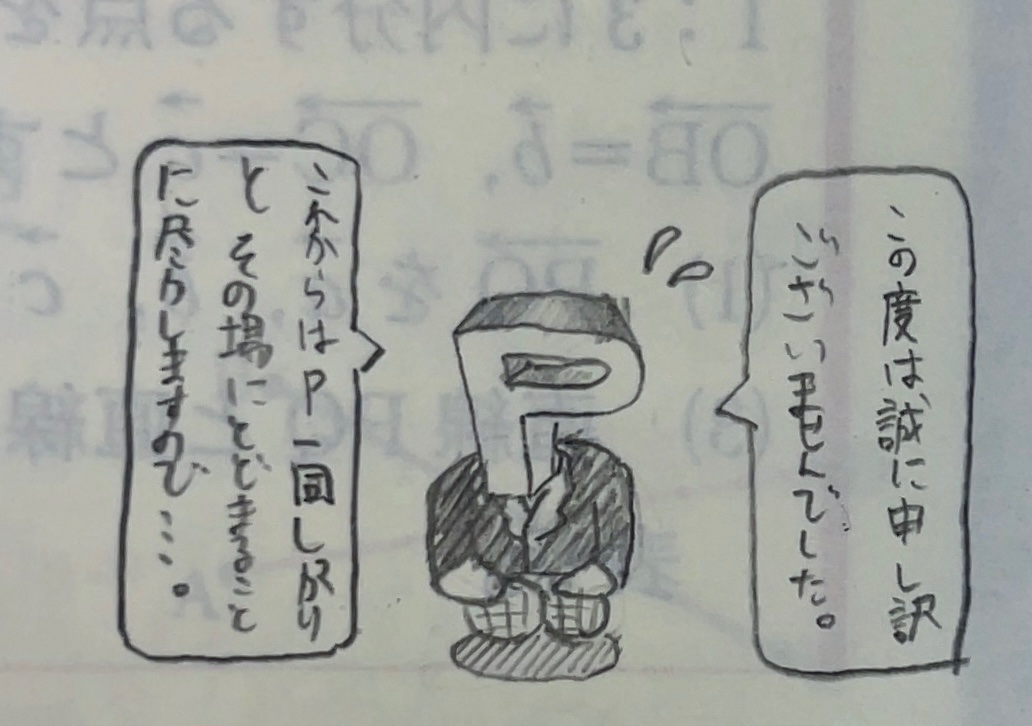 この度は誠に申し訳
ございませんでした。
P
これからはP一同しっかり
とその場にとどまること
に尽力しますので…。
1:3に内分する点を
OB=b, OC=c と
(1) PQ を
(3) 直線PQと直線